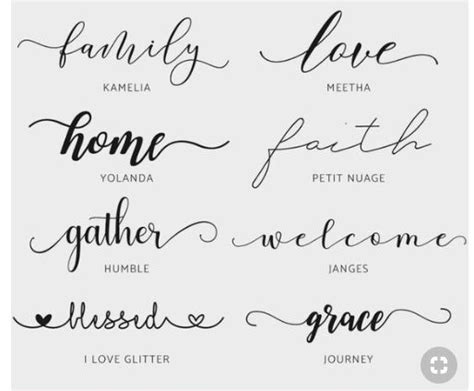 family
KAMELIA
love
MEETHA
home
YOLANDA
faith
PETIT NUAGE
gather
HUMBLE
welcome
JANGES
blessed
I LOVE GLITTER
grace
JOURNEY